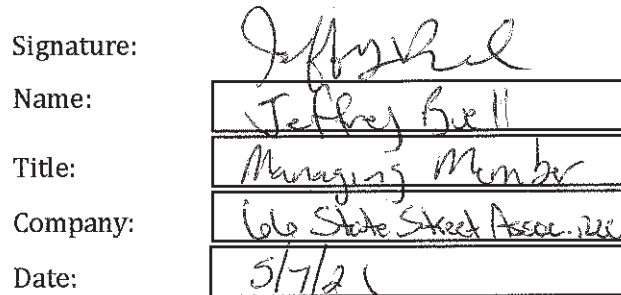 Signature:
Name: Jeffrey Buell
Title: Managing Member
Company: 66 State Street Assoc.
Date: 5/7/21